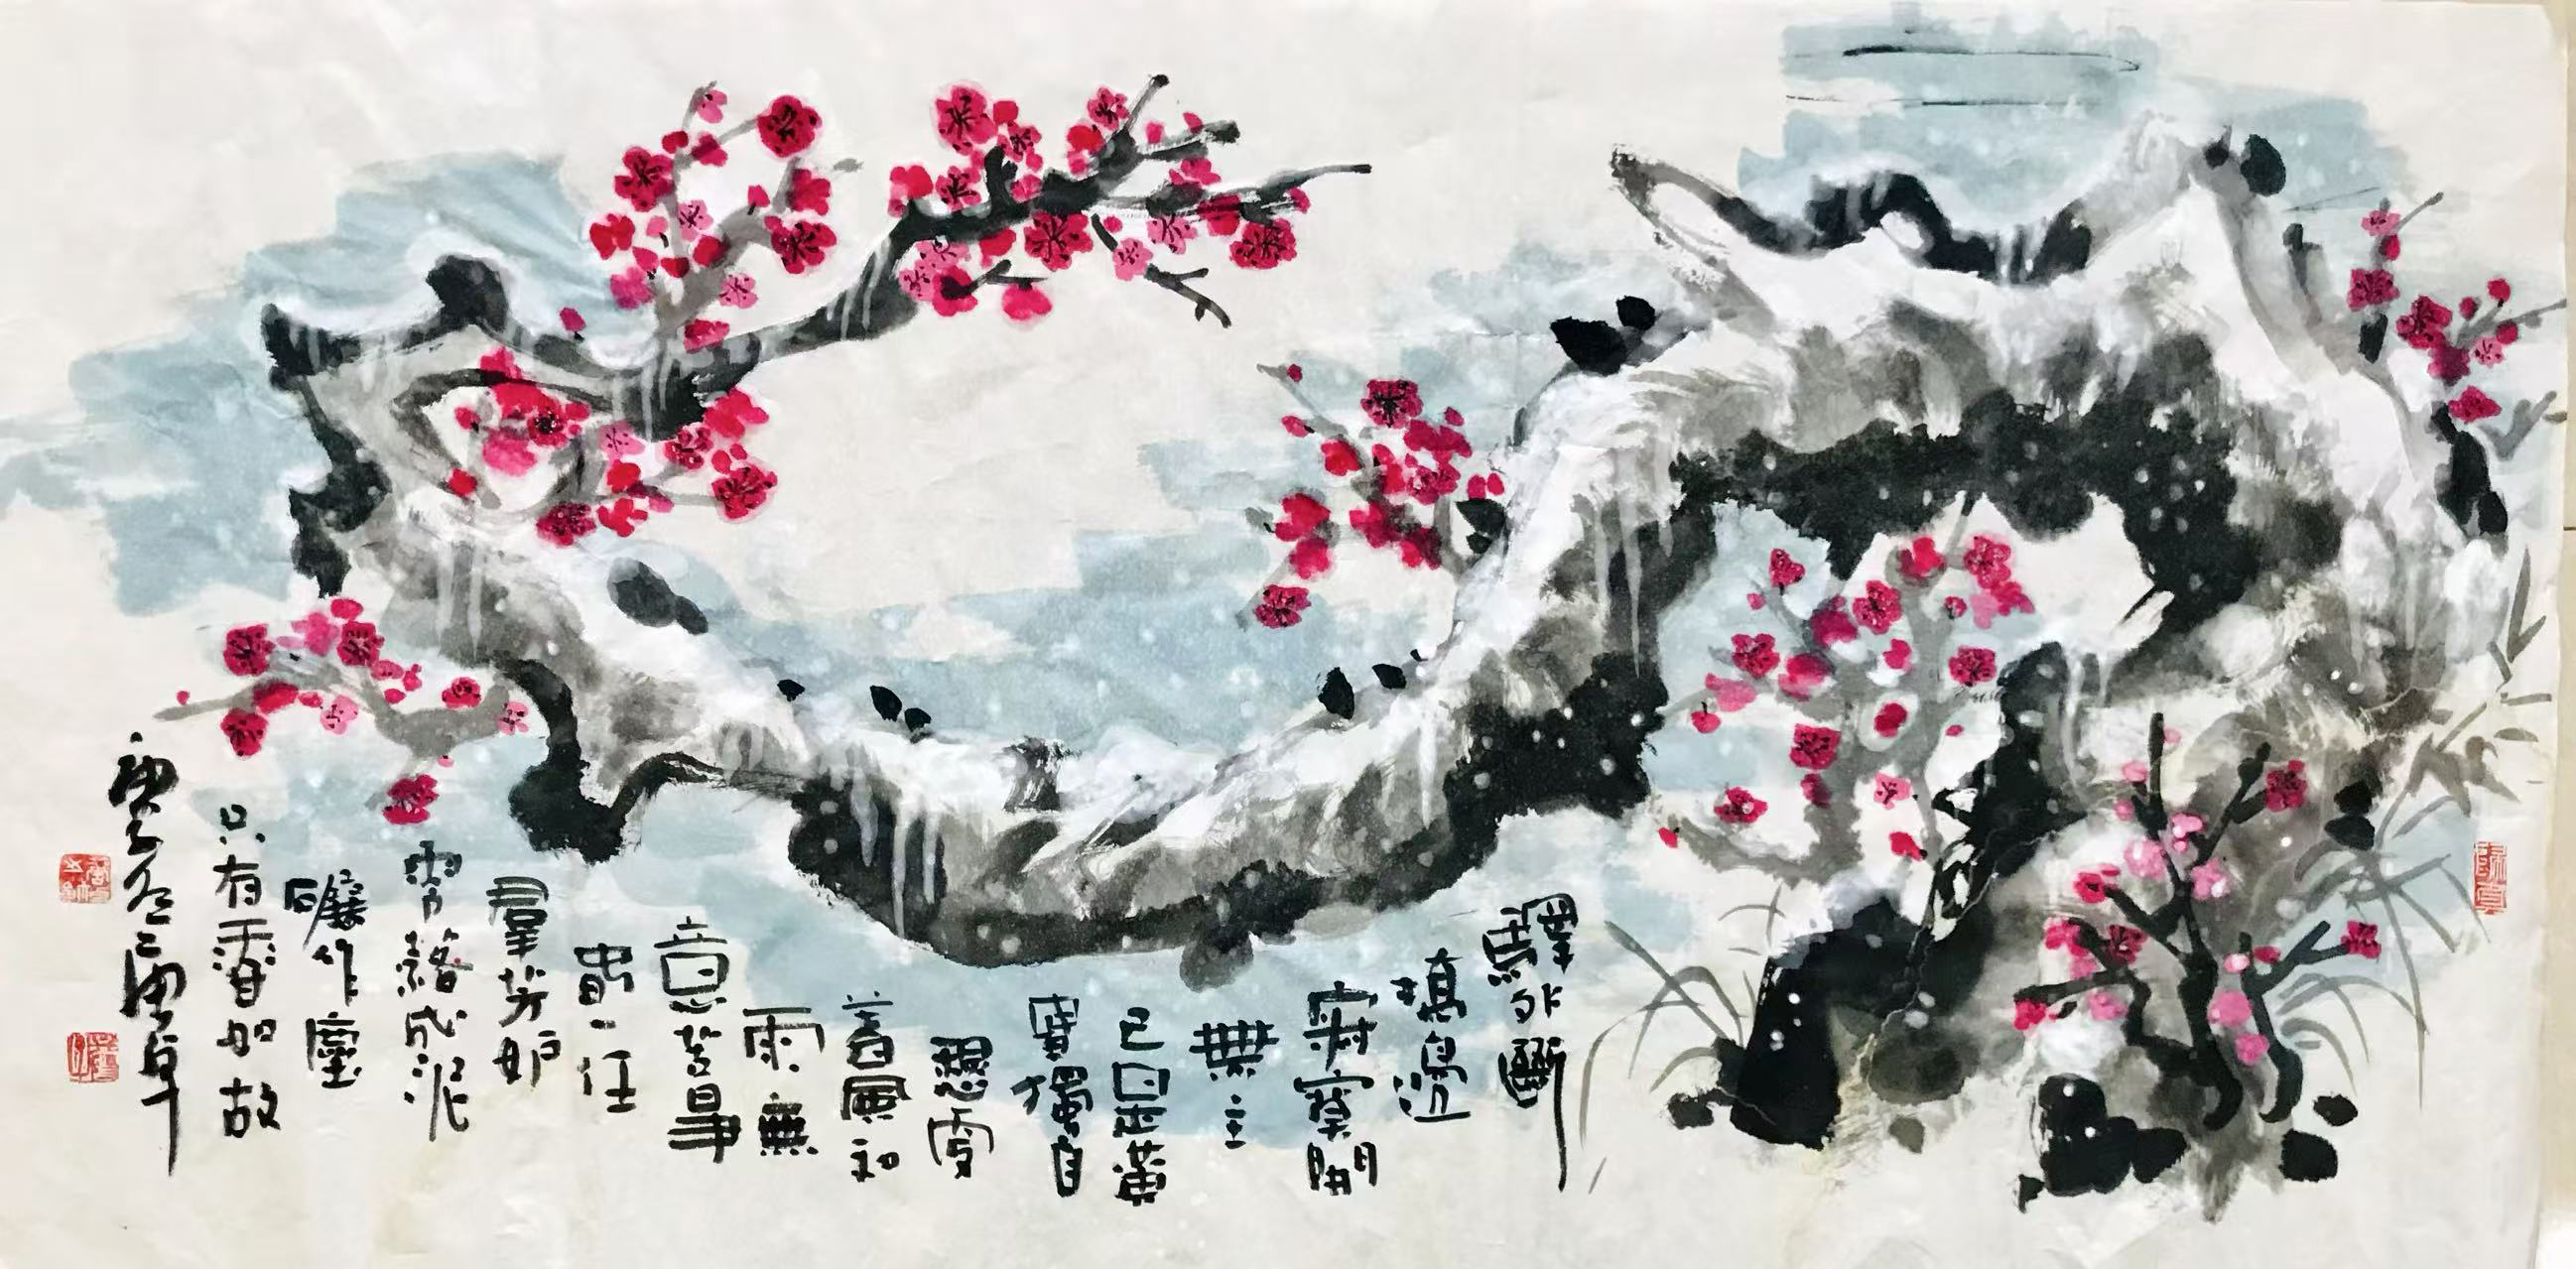 驛外斷
橋邊
寂寞開
無主
已是黃
昏獨自
愁更
著風和
雨無
意苦爭
春一任
羣芳妒
零落成泥
碾作塵
只有香如故